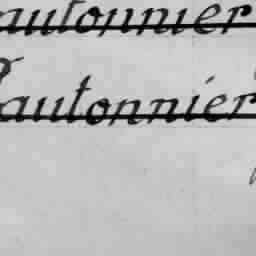 autonnier
Sautonnier